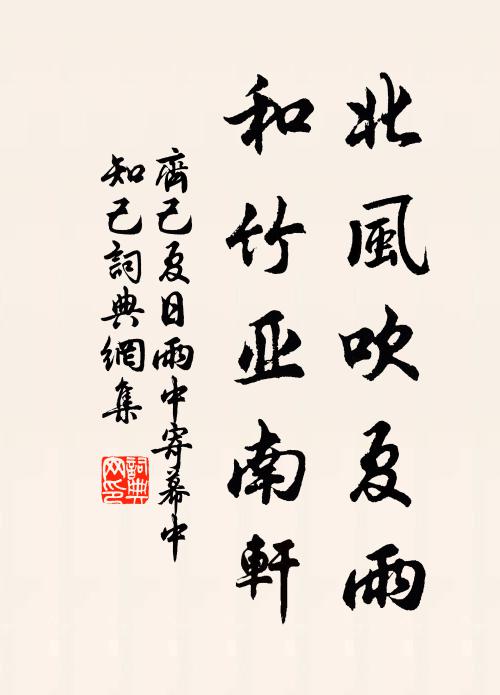 北風吹夏雨
和竹亚南軒
齊己夏日雨中寄幕中
知己詞典網集
詞典网印